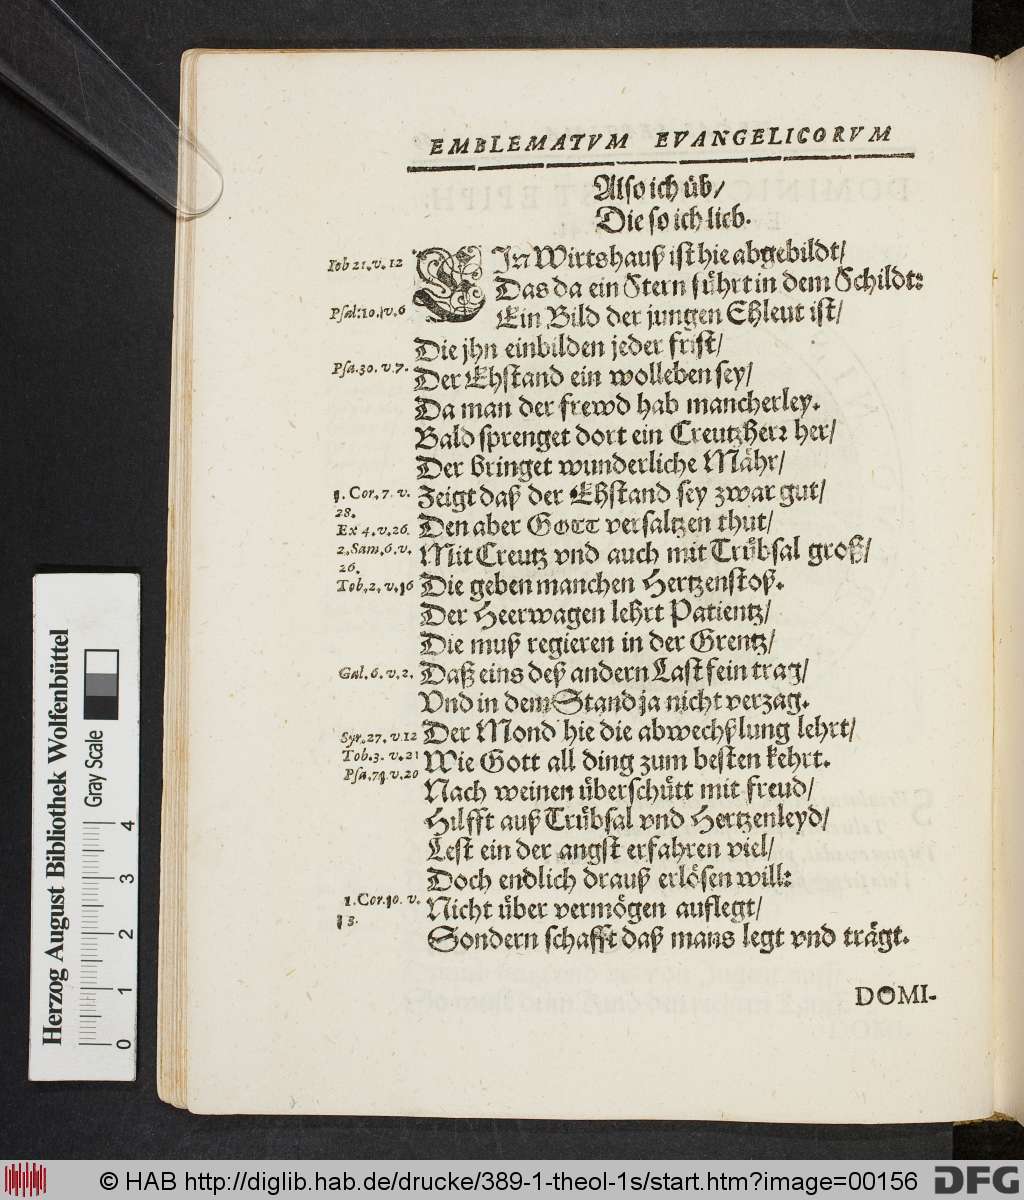 EMBLEMATVM EVANGELICORVM
Also ich üb/
Die so ich lieb.
Iob 21. v. 12
EIn Wirtshauß ist hie abgebildt/
Das da ein Stern führt in dem Schildt:
Psal: 10. v. 6
Ein Bild der jungen Ehleut ist/
Die jhn einbilden jeder frist/
Psa. 30. v. 7.
Der Ehstand ein wolleben sey/
Da man der frewd hab mancherley.
Bald sprenget dort ein Creutzherr her/
Der bringet wunderliche Mähr/
1. Cor. 7. v.
28.
Zeigt daß der Ehstand sey zwar gut/
Ex 4. v. 26.
Den aber GOTT versaltzen thut/
2. Sam. 6. v.
26.
Mit Creutz vnd auch mit Trübsal groß/
Tob. 2. v. 16
Die geben manchen Hertzenstoß.
Der Heerwagen lehrt Patientz/
Die muß regieren in der Grentz/
Gal. 6. v. 2.
Daß eins deß andern Last fein trag/
Vnd in dem Stand ja nicht verzag.
Syr. 27. v. 12
Der Mond hie die abwechßlung lehrt/
Tob. 3. v. 21
Wie Gott all ding zum besten kehrt.
Psa. 71. v. 20
Nach weinen überschütt mit freud/
Hilfft auß Trübsal vnd Hertzenleyd/
Lest ein der angst erfahren viel/
Doch endlich drauß erlösen will:
1. Cor. 10. v.
13.
Nicht über vermögen auflegt/
Sondern schafft daß mans legt vnd trägt.
DOMI-
Herzog August Bibliothek Wolfenbüttel
Gray Scale
0 1 2 3 4
© HAB http://diglib.hab.de/drucke/389-1-theol-1s/start.htm?image=00156
DFG